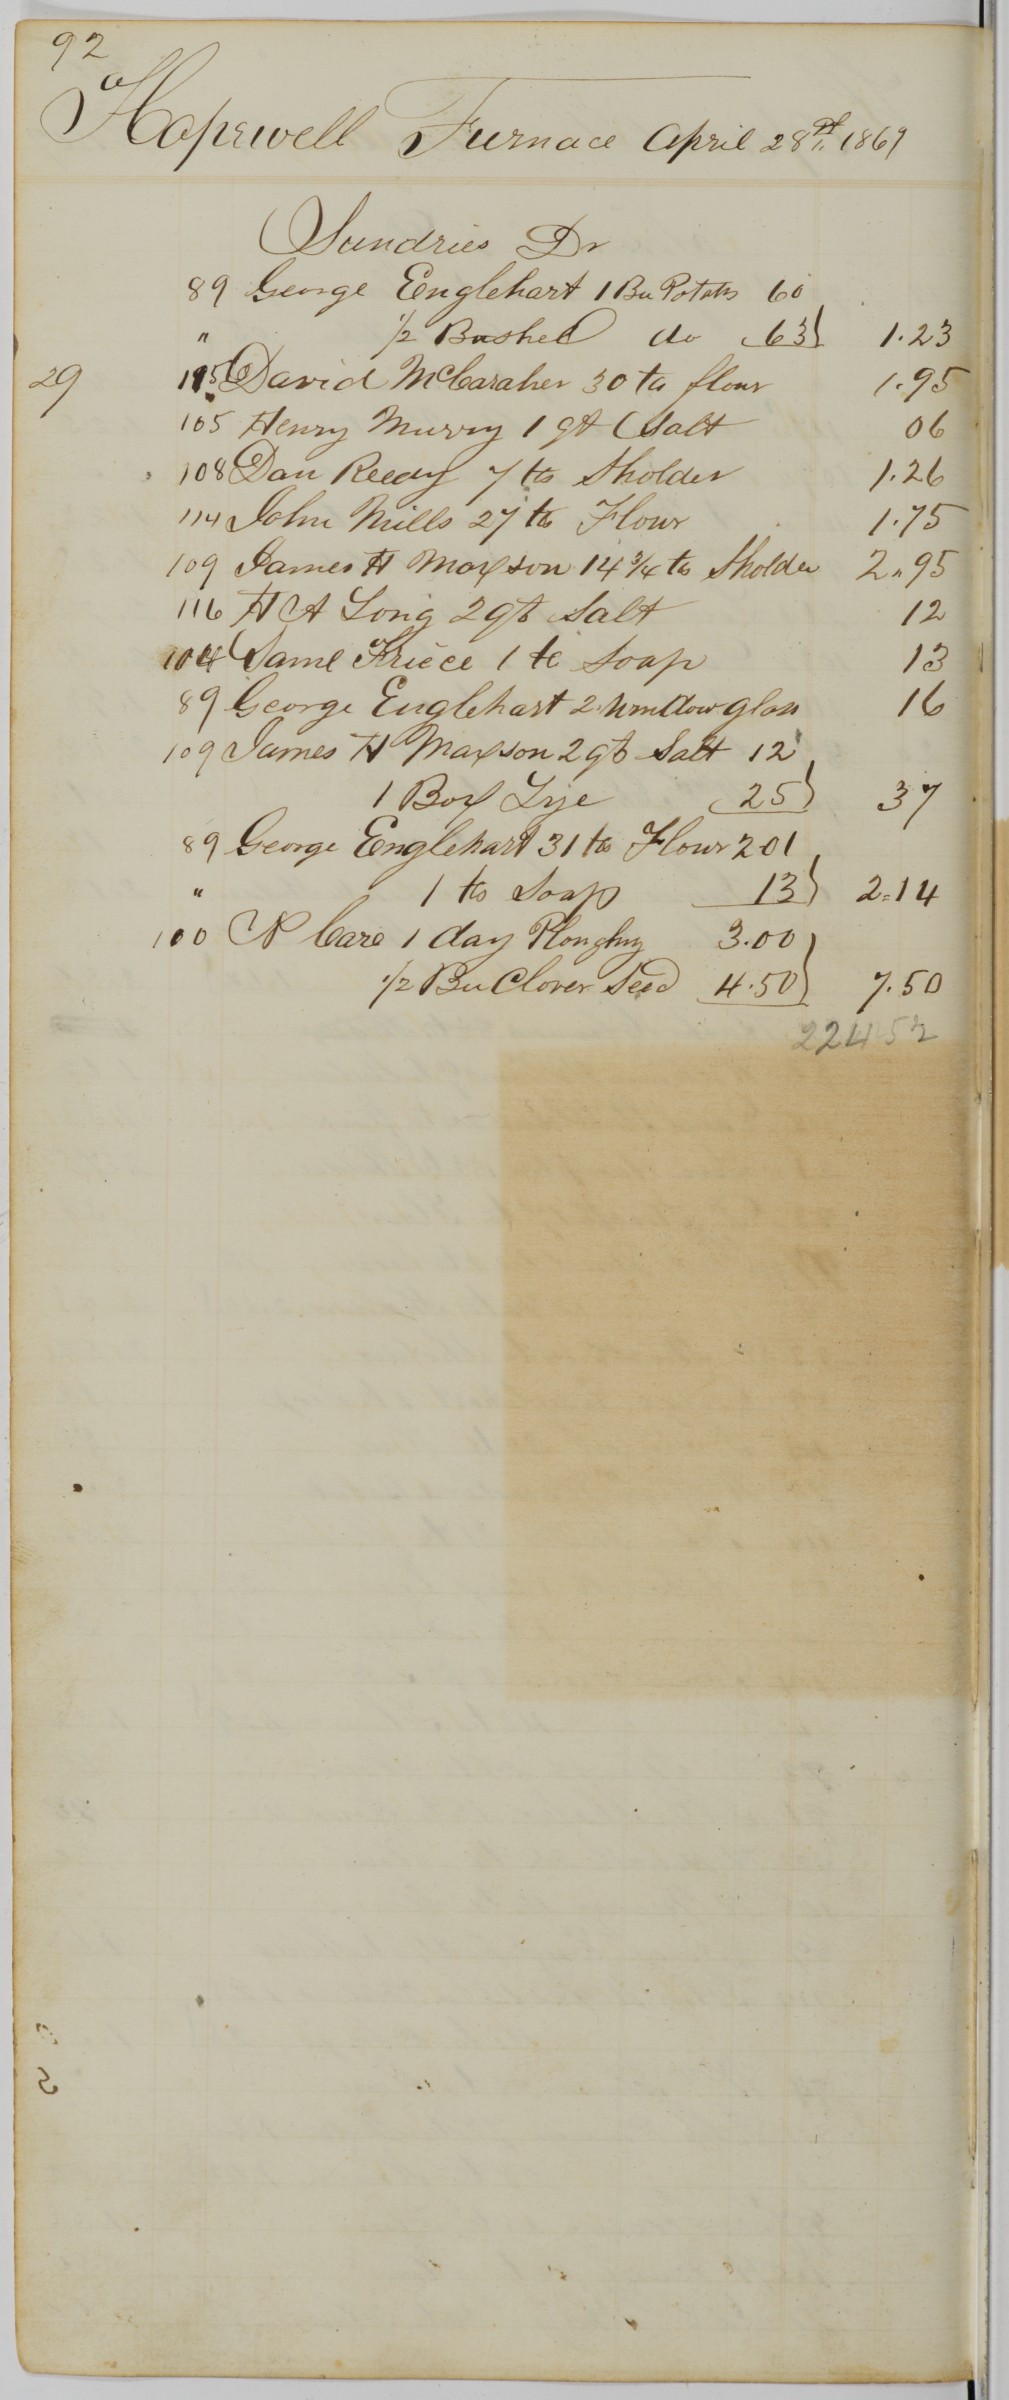 92
Hopewell Furnace April 28th 1869
Sundries Dr
89 George Englehart 1 Bu Potats 60
" 1/2 Bushel do 63 1.23
29 115 David McCaraher 30 lbs flour 1.95
105 Henry Murry 1 qt Salt 06
108 Dan Reedy 7 lbs Sholder 1.26
114 John Mills 27 lbs Flour 1.75
109 James H Maxson 14 3/4 lbs Sholder 2.95
116 H A Long 2 qts Salt 12
104 Saml Friece 1 lb Soap 13
89 George Englehart 2 Window glass 16
109 James H Maxson 2 qts Salt 12
1 Box Lye 25 37
89 George Englehart 31 lbs Flour 201
" 1 lb Soap 13 2=14
100 N Care 1 day Ploughing 3.00
1/2 Bu Clover Seed 4.50 7.50
22452